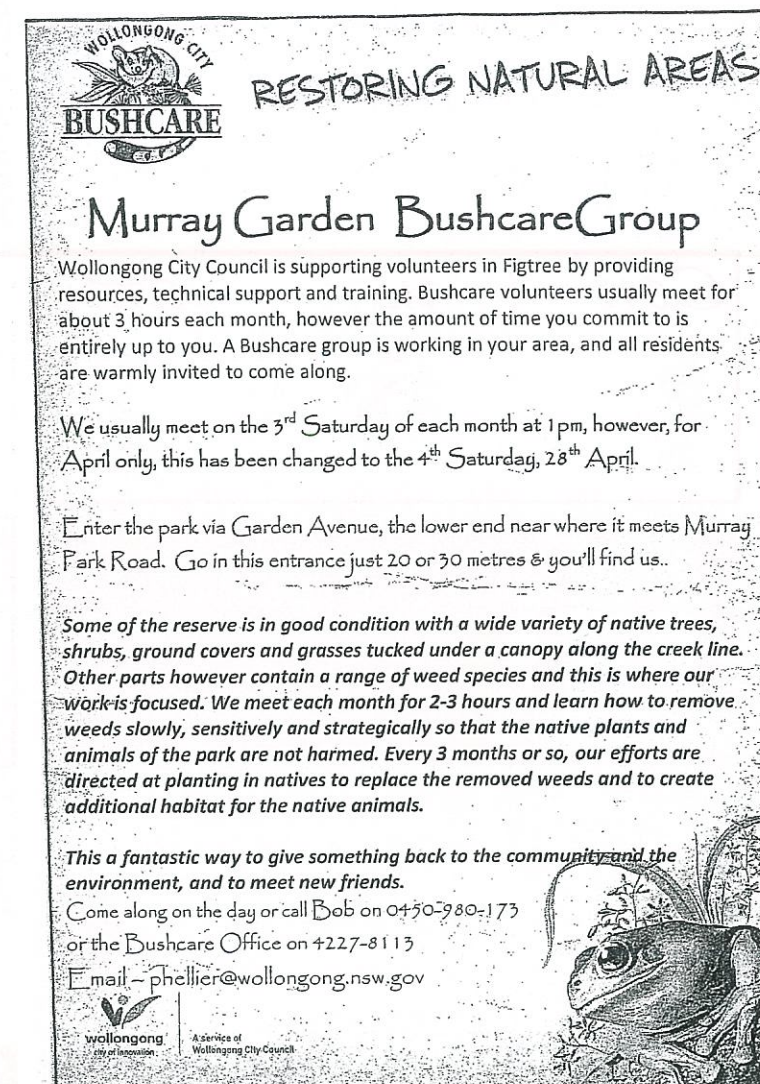 WOLLONGONG CITY
BUSHCARE
RESTORING NATURAL AREAS
Murray Garden BushcareGroup
Wollongong City Council is supporting volunteers in Figtree by providing
resources, technical support and training. Bushcare volunteers usually meet for
about 3 hours each month, however the amount of time you commit to is
entirely up to you. A Bushcare group is working in your area, and all residents
are warmly invited to come along.
We usually meet on the 3rd Saturday of each month at 1pm, however, for
April only, this has been changed to the 4th Saturday, 28th April.
Enter the park via Garden Avenue, the lower end near where it meets Murray
Park Road. Go in this entrance just 20 or 30 metres & you'll find us..
Some of the reserve is in good condition with a wide variety of native trees,
shrubs, ground covers and grasses tucked under a canopy along the creek line.
Other parts however contain a range of weed species and this is where our
work is focused. We meet each month for 2-3 hours and learn how to remove
weeds slowly, sensitively and strategically so that the native plants and
animals of the park are not harmed. Every 3 months or so, our efforts are
directed at planting in natives to replace the removed weeds and to create
additional habitat for the native animals.
This a fantastic way to give something back to the community and the
environment, and to meet new friends.
Come along on the day or call Bob on 0450-980-173
or the Bushcare Office on 4227-8113
Email – phellier@wollongong.nsw.gov
wollongong
city of innovation
A service of
Wollongong City Council